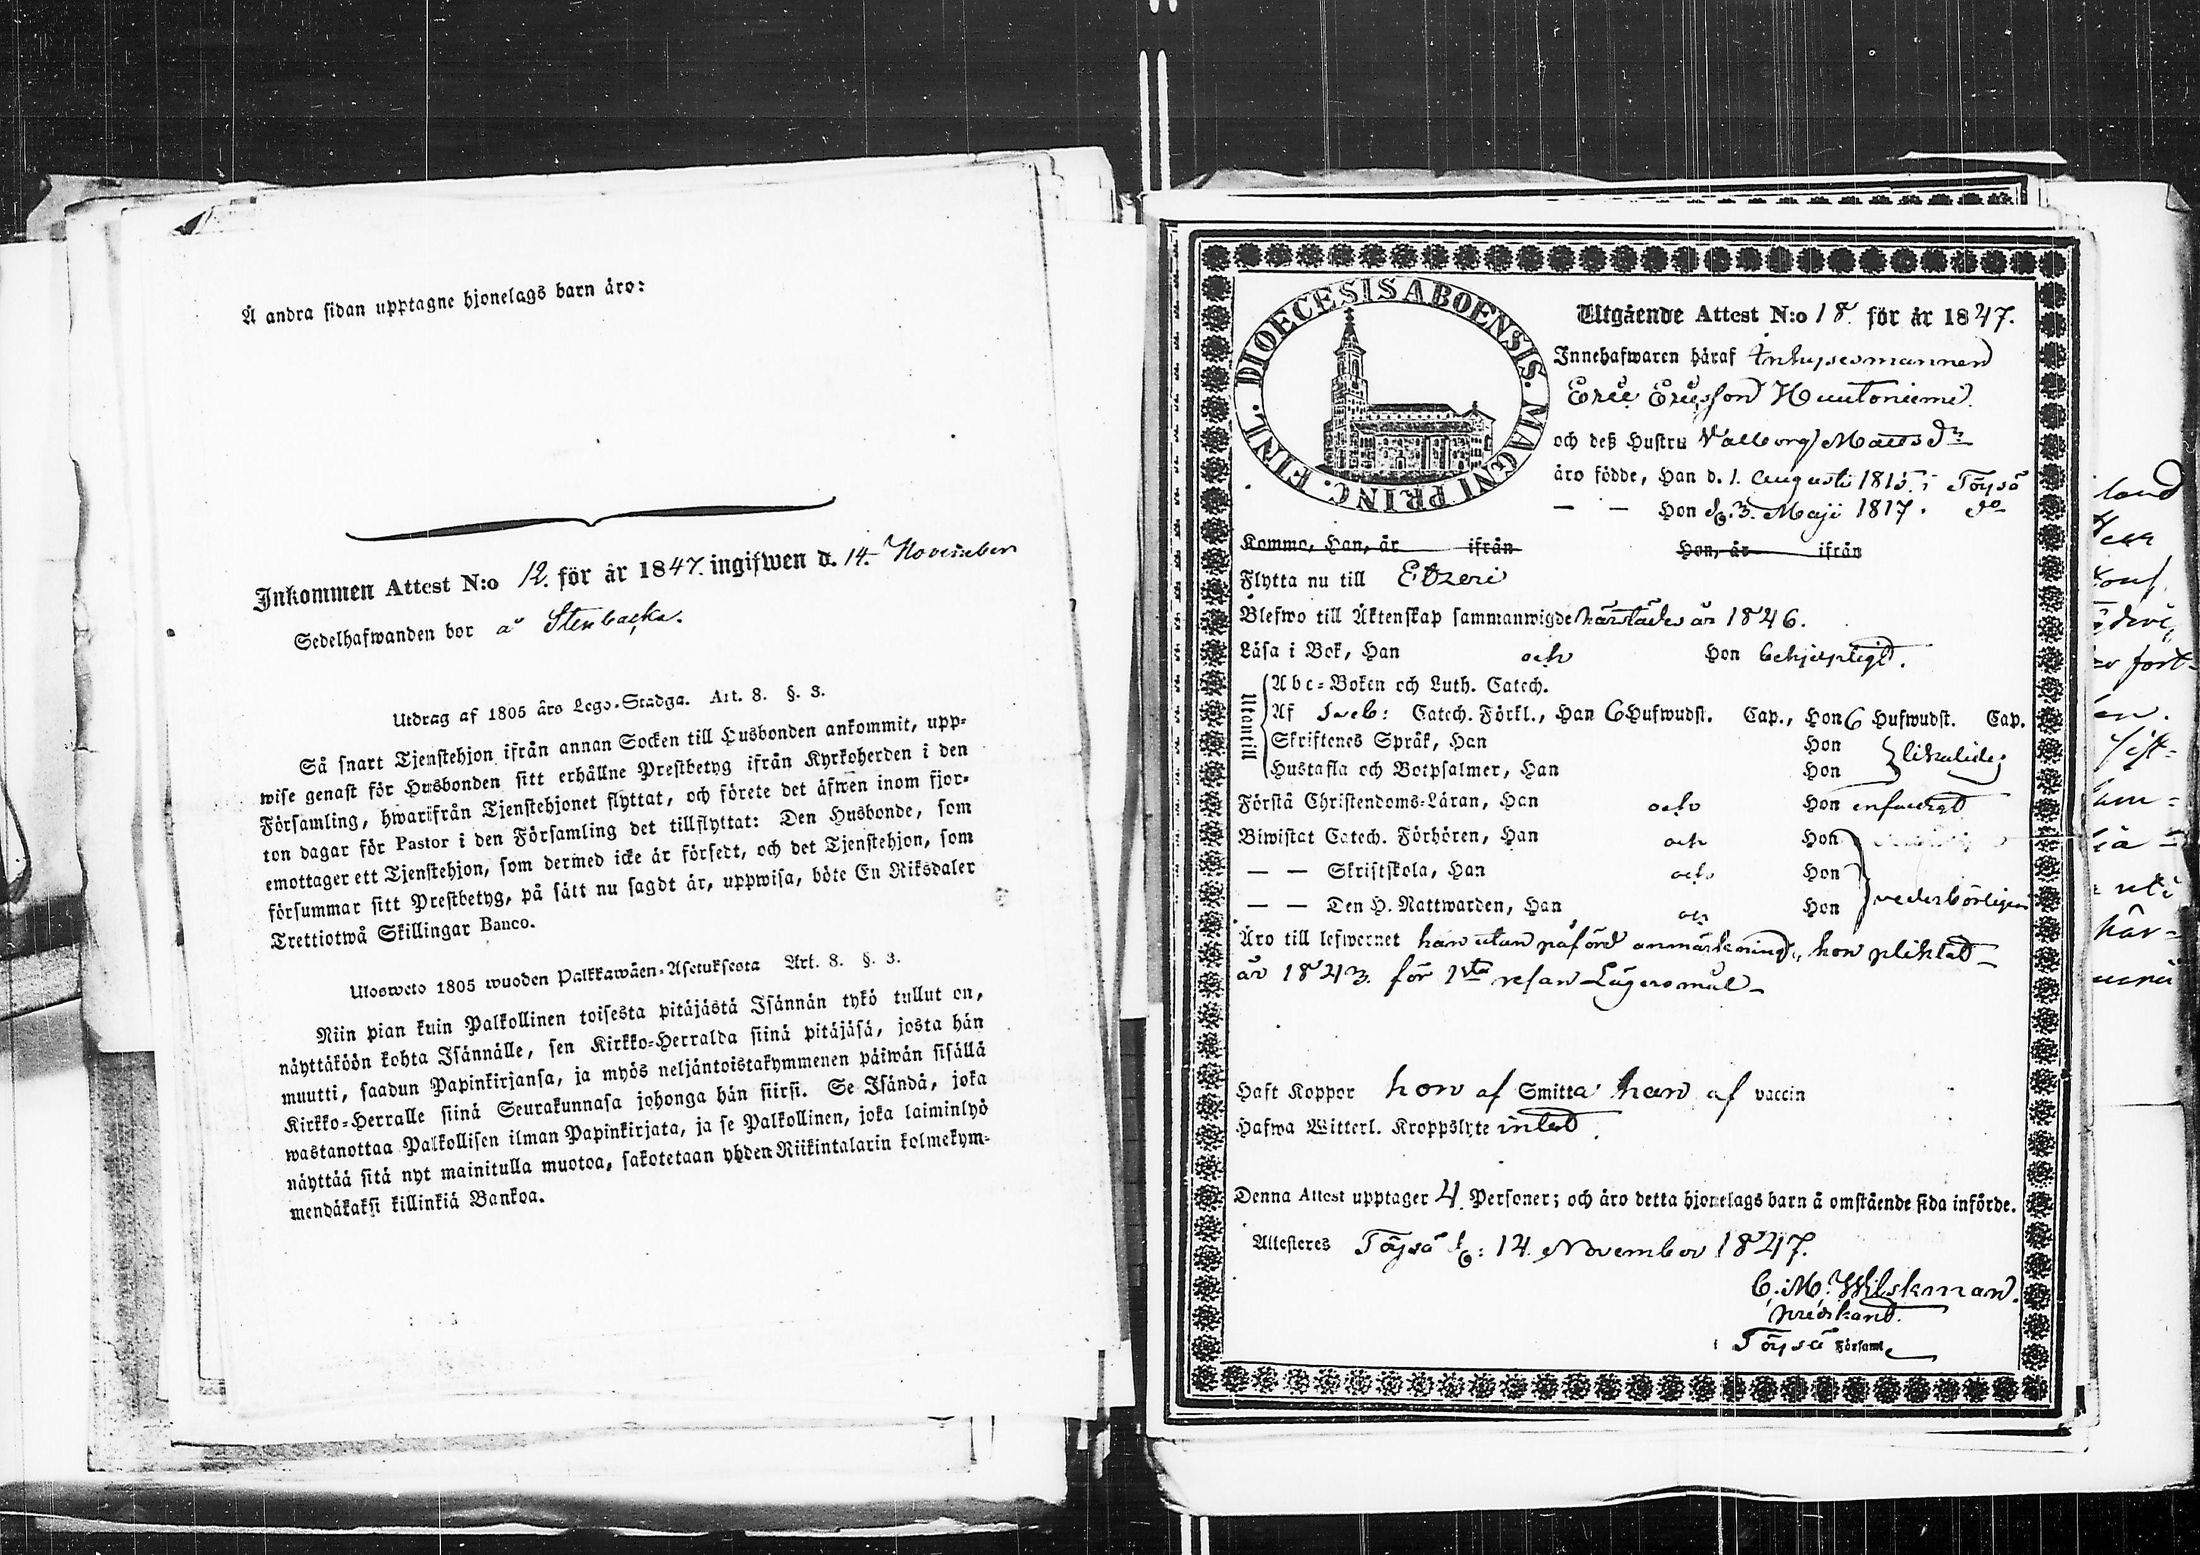 Å andra sidan upptagne hjonelags barn äro:
Inkommen Attest N:o 12. för år 1847. ingifwen d. 14 November
Sedelhafwanden bor å Stenbacka.
Utdrag af 1805 års Lego-Stadga. Art. 8. §. 3.
Så snart Tjenstehjon ifrån annan Socken till Husbonden ankommit, upp-
wise genast för Husbonden sitt erhållne Prestbetyg ifrån Kyrkoherden i den
Församling, hwarifrån Tjenstehjonet flyttat, och förete det äfwen inom fjor-
ton dagar för Pastor i den Församling det tillflyttat: Den Husbonde, som
emottager ett Tjenstehjon, som dermed icke är försedt, och det Tjenstehjon, som
försummar sitt Prestbetyg, på sätt nu sagdt är, uppwisa, böte En Riksdaler
Trettiotwå Skillingar Banco.
Ulosweto 1805 wuoden Palkkawäen-Asetuksesta Art. 8. §. 3.
Niin pian kuin Palkollinen toisesta pitäjästä Isännän tykö tullut on,
näyttäköön kohta Isännälle, sen Kirkko-Herralda siinä pitäjäsä, josta hän
muutti, saadun Papinkirjansa, ja myös neljäntoistakymmenen päiwän sisällä
Kirkko-Herralle siinä Seurakunnasa johonga hän siirsi. Se Isändä, joka
wastanottaa Palkollisen ilman Papinkirjata, ja se Palkollinen, joka laiminlyö
näyttää sitä nyt mainitulla muotoa, sakotetaan yhden Riikintalarin kolmekym-
mendäkaksi killinkiä Bankoa.
DIOECESIS ABOENSIS. MAGNI PRINC. FINL.
Utgående Attest N:o 18. för år 1847.
Innehafwaren häraf Inhysesmannen
Eric Ericsson Huutoniemi.
och deß Hustru Valborg Matts dr
äro födde, Han d. 1. Augusti 1815. i Töysä
— — Hon d. 3. Maji 1817. do
Komma, Han, år ifrån Hon, år ifrån
Flytta nu till Etzeri
Blefwo till Äktenskap sammanwigde härstädes år 1846.
Läsa i Bok, Han och Hon behjelpligt.
Utantill
Abc-Boken och Luth. Catech.
Af Sveb: Catech. Förkl., Han 6 Hufwudst. Cap., Hon 6 Hufwudst. Cap.
Skriftenes Språk, Han Hon
Hustafla och Botpsalmer, Han Hon likaledes
Förstå Christendoms-Läran, Han och Hon enfaldigt
Biwistat Catech. Förhören, Han och Hon
— — Skriftskola, Han och Hon
— — Den H. Nattwarden, Han och Hon vederbörligen
Äro till lefwernet han utan påförd anmärkning, hon pliktat
år 1843. för 1sta resan Lägersmål
Haft Koppor hon af Smitta han af vaccin
Hafwa Witterl. Kroppslyte intet.
Denna Attest upptager 4 Personer; och äro detta hjonelags barn å omstående sida införde.
Attesteres Töysä d: 14 November 1847.
C. M. Wilskman.
predikant.
i Töysä Församl.